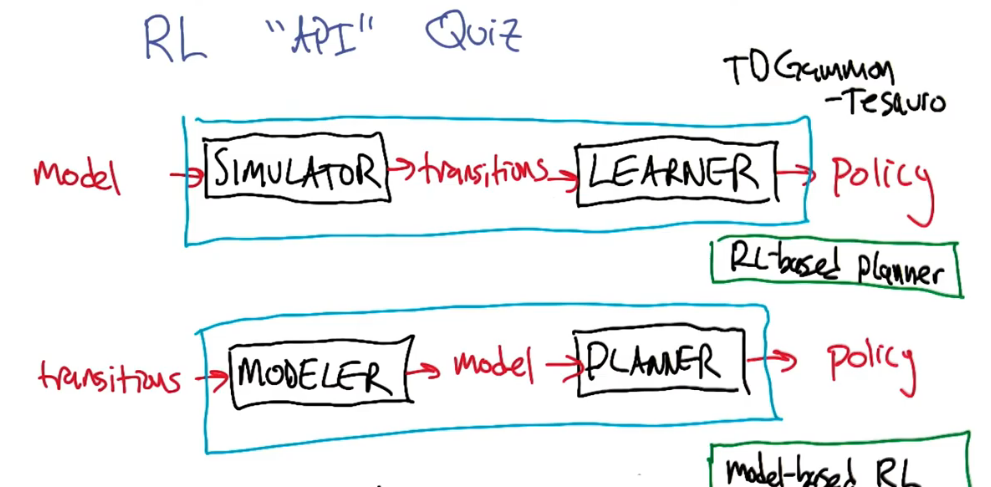 RL "API" Quiz
TDGammon
-Tesauro
model → SIMULATOR → transitions → LEARNER → policy
RL-based planner
transitions → MODELER → model → PLANNER → policy
model-based RL